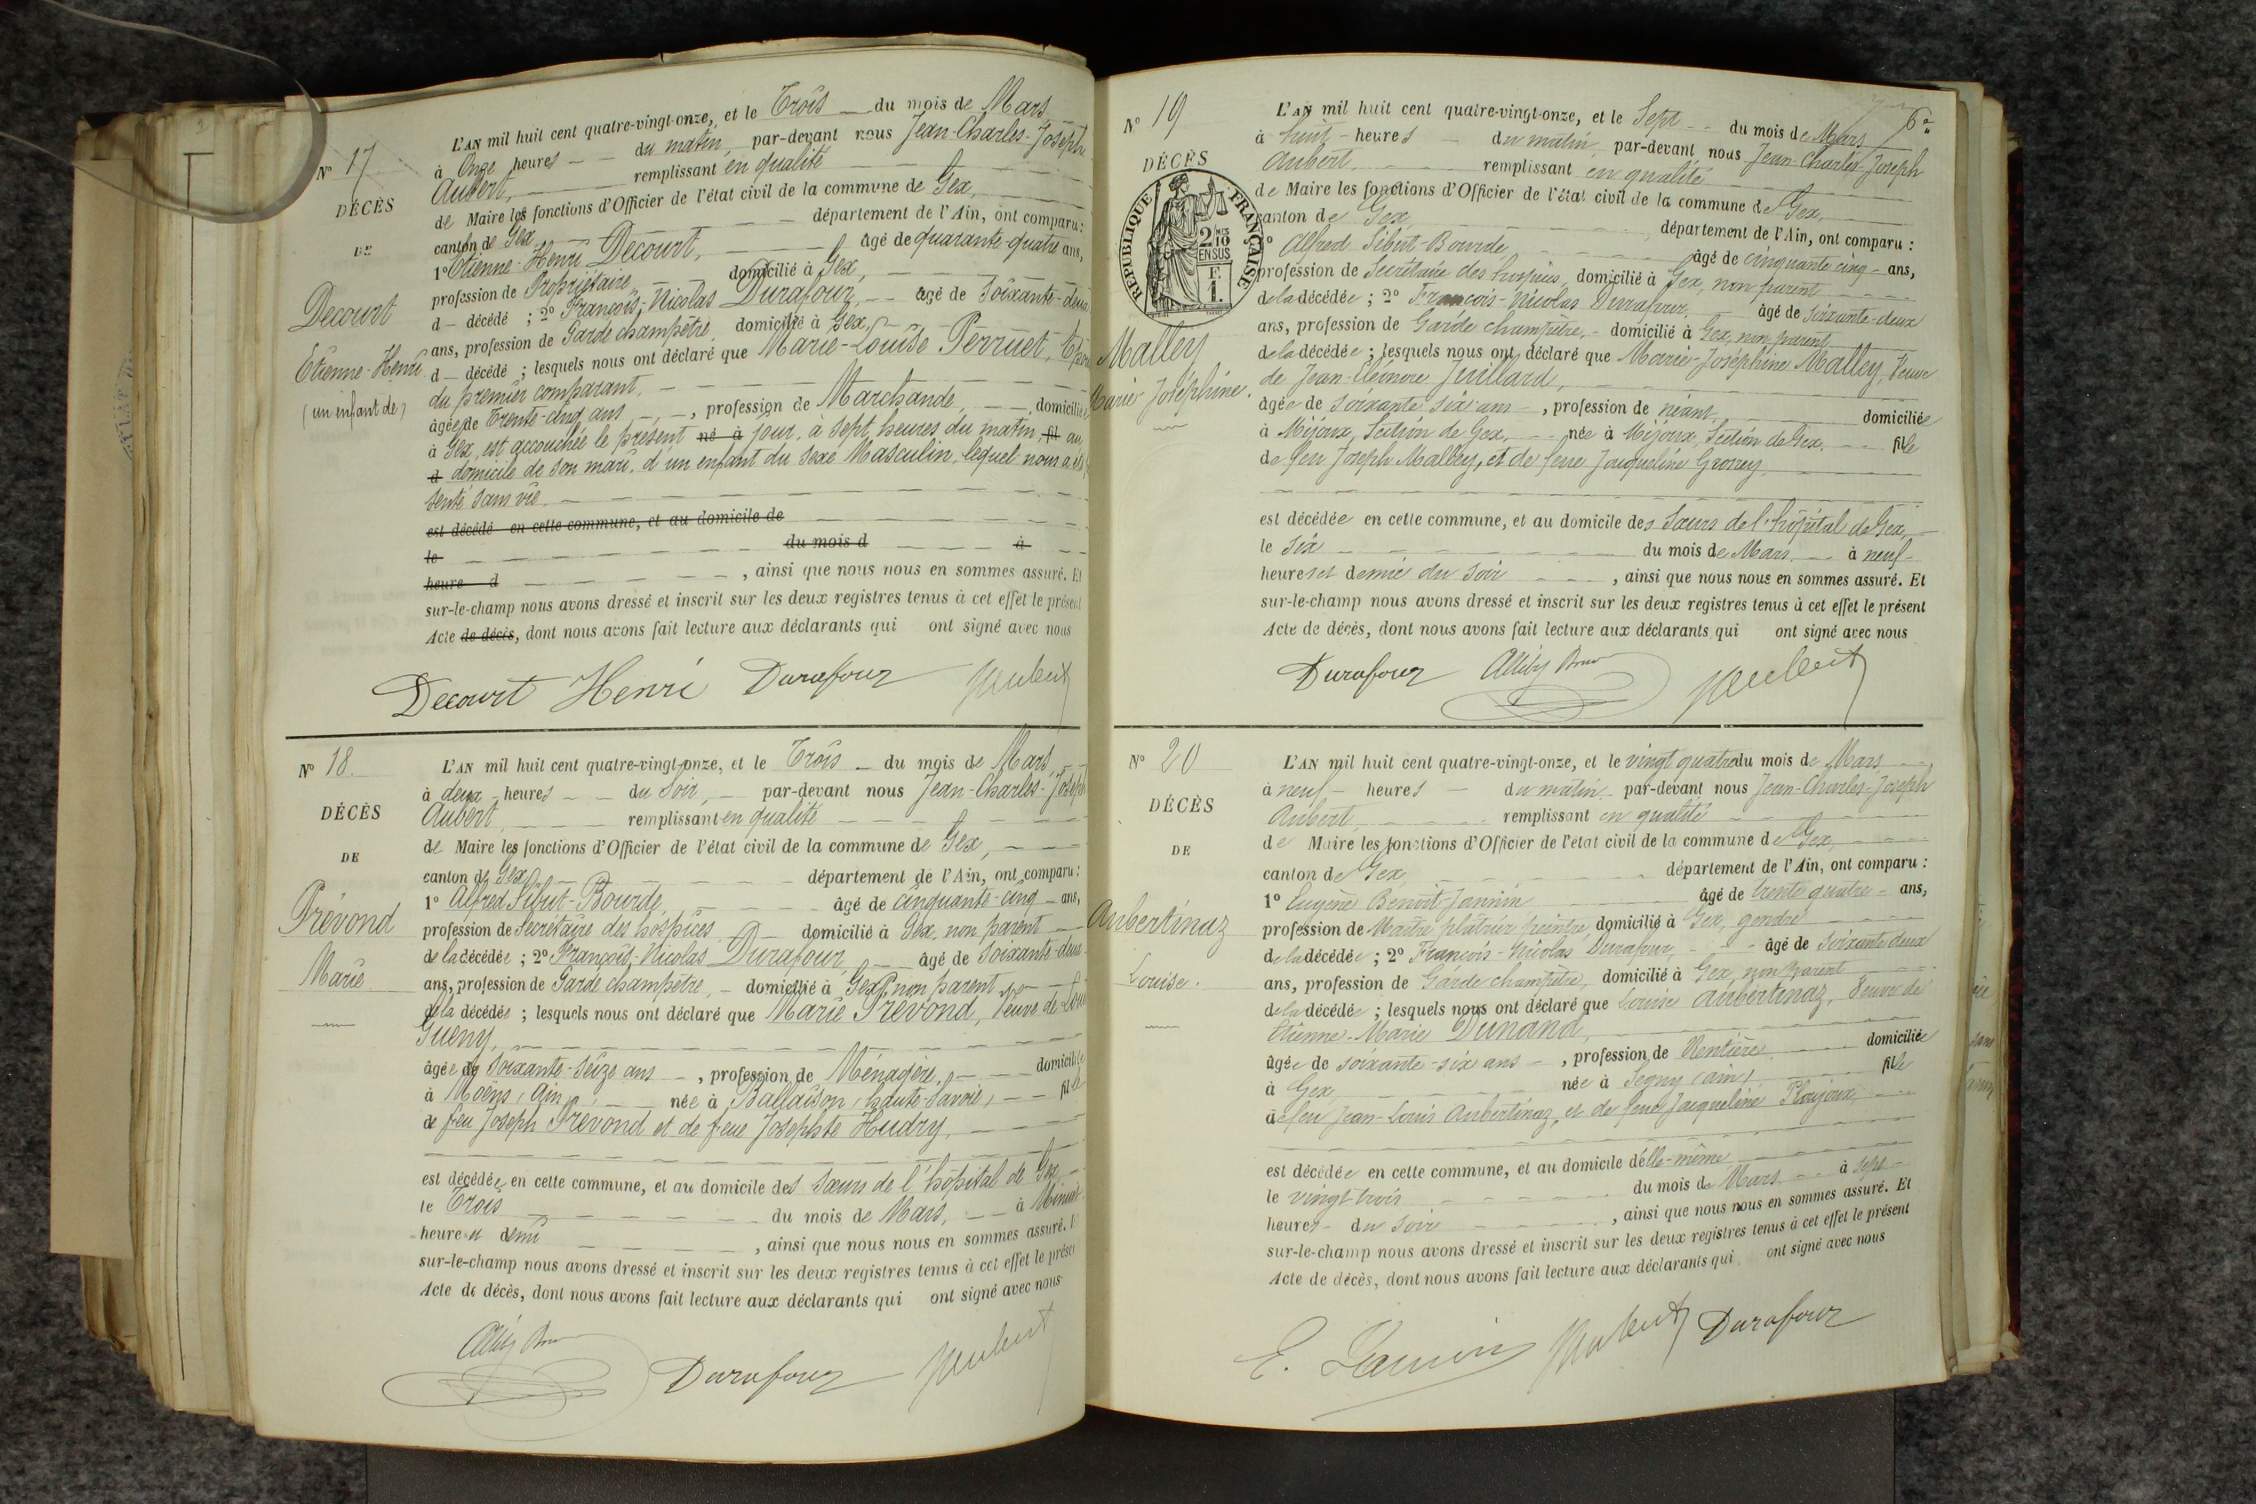 N° 17
DÉCÈS
DE
Decourt
Etienne-Henri
(un enfant de)
L'AN mil huit cent quatre-vingt-onze, et le Trois du mois de Mars
à Onze heures du matin par-devant nous Jean-Charles-Joseph
Aubert, remplissant en qualité
de Maire les fonctions d'Officier de l'état civil de la commune de Gex,
canton de Gex département de l'Ain, ont comparu :
1° Etienne-Henri Decourt, âgé de quarante-quatre ans,
profession de Propriétaire domicilié à Gex,
d décédé ; 2° François-Nicolas Durafour, âgé de soixante-deux
ans, profession de Garde champêtre, domicilié à Gex,
d décédé ; lesquels nous ont déclaré que Marie-Louise Perruet,
du premier comparant,
âgée de Trente-cinq ans, profession de Marchande, domiciliée
à Gex, est accouchée le présent né à jour, à sept heures du matin, fil au
d domicile de son mari, d'un enfant du sexe Masculin, lequel nous a
senté sans vie.
est décédé en cette commune, et au domicile de
le du mois d à
heure d , ainsi que nous nous en sommes assuré. Et
sur-le-champ nous avons dressé et inscrit sur les deux registres tenus à cet effet le présent
Acte de décès, dont nous avons fait lecture aux déclarants qui ont signé avec nous
Decourt Henri Durafour Aubert
N° 18.
DÉCÈS
DE
Prévond
Marie
L'AN mil huit cent quatre-vingt-onze, et le Trois du mois de Mars
à deux heures du soir, par-devant nous Jean-Charles-Joseph
Aubert, remplissant en qualité
de Maire les fonctions d'Officier de l'état civil de la commune de Gex,
canton de Gex département de l'Ain, ont comparu :
1° Alfred Sibut-Bourde, âgé de cinquante-cinq ans,
profession de Secrétaire des hospices domicilié à Gex, non parent
de la décédée ; 2° François-Nicolas Durafour, âgé de soixante-deux
ans, profession de Garde champêtre, domicilié à Gex, non parent
de la décédée ; lesquels nous ont déclaré que Marie Prévond, Veuve de
Gueny,
âgée de Soixante-seize ans, profession de Ménagère, domiciliée
à Moëns, Ain, née à Ballaison, haute-Savoie, fille
de feu Joseph Prévond et de feue Josephte Hudry,
est décédée en cette commune, et au domicile des Sœurs de l'hôpital de Gex
le Trois du mois de Mars, à Minuit
heure et demi , ainsi que nous nous en sommes assuré. Et
sur-le-champ nous avons dressé et inscrit sur les deux registres tenus à cet effet le présent
Acte de décès, dont nous avons fait lecture aux déclarants qui ont signé avec nous
Durafour Aubert
6e
N° 19
DÉCÈS
RÉPUBLIQUE FRANÇAISE
2 10
EN SUS
F.
1.
Malley
Marie Joséphine.
L'AN mil huit cent quatre-vingt-onze, et le Sept du mois de Mars
à huit heures du matin par-devant nous Jean-Charles-Joseph
Aubert remplissant en qualité
de Maire les fonctions d'Officier de l'état civil de la commune de Gex,
canton de Gex département de l'Ain, ont comparu :
1° Alfred Sibut-Bourde, âgé de cinquante cinq ans,
profession de Secrétaire des hospices, domicilié à Gex, non parent
de la décédée ; 2° François-Nicolas Durafour, âgé de soixante-deux
ans, profession de Garde champêtre, domicilié à Gex, non parent
de la décédée ; lesquels nous ont déclaré que Marie-Joséphine Malley, Veuve
de Jean-Eléonore Juillard,
âgée de soixante six ans, profession de néant, domiciliée
à Mijoux, Section de Gex, née à Mijoux, Section de Gex. fille
de feu Joseph Malley, et de feue Jacqueline Grosrey,
est décédée en cette commune, et au domicile des Sœurs de l'hôpital de Gex,
le six du mois de Mars à neuf
heures et demie du soir , ainsi que nous nous en sommes assuré. Et
sur-le-champ nous avons dressé et inscrit sur les deux registres tenus à cet effet le présent
Acte de décès, dont nous avons fait lecture aux déclarants qui ont signé avec nous
Durafour Aubert
N° 20
DÉCÈS
DE
Aubertinaz
Louise.
L'AN mil huit cent quatre-vingt-onze, et le vingt quatre du mois de Mars
à neuf heures du matin par-devant nous Jean-Charles-Joseph
Aubert, remplissant en qualité
de Maire les fonctions d'Officier de l'état civil de la commune de Gex,
canton de Gex département de l'Ain, ont comparu :
1° Eugène Benoit-Jannin âgé de trente quatre ans,
profession de Maître plâtrier peintre, domicilié à Gex, gendre
de la décédée ; 2° François-Nicolas Durafour, âgé de soixante deux
ans, profession de Garde champêtre, domicilié à Gex, non parent
de la décédée ; lesquels nous ont déclaré que Louise Aubertinaz, Veuve de
Etienne-Marie Dunand,
âgée de soixante-six ans, profession de Rentière domiciliée
à Gex, née à Segny (Ain) fille
de feu Jean-Louis Aubertinaz, et de feue Jacqueline Ploujoux,
est décédée en cette commune, et au domicile d'elle-même
le vingt trois du mois de Mars à sept
heures du soir , ainsi que nous nous en sommes assuré. Et
sur-le-champ nous avons dressé et inscrit sur les deux registres tenus à cet effet le présent
Acte de décès, dont nous avons fait lecture aux déclarants qui ont signé avec nous
E. Jannin Aubert Durafour